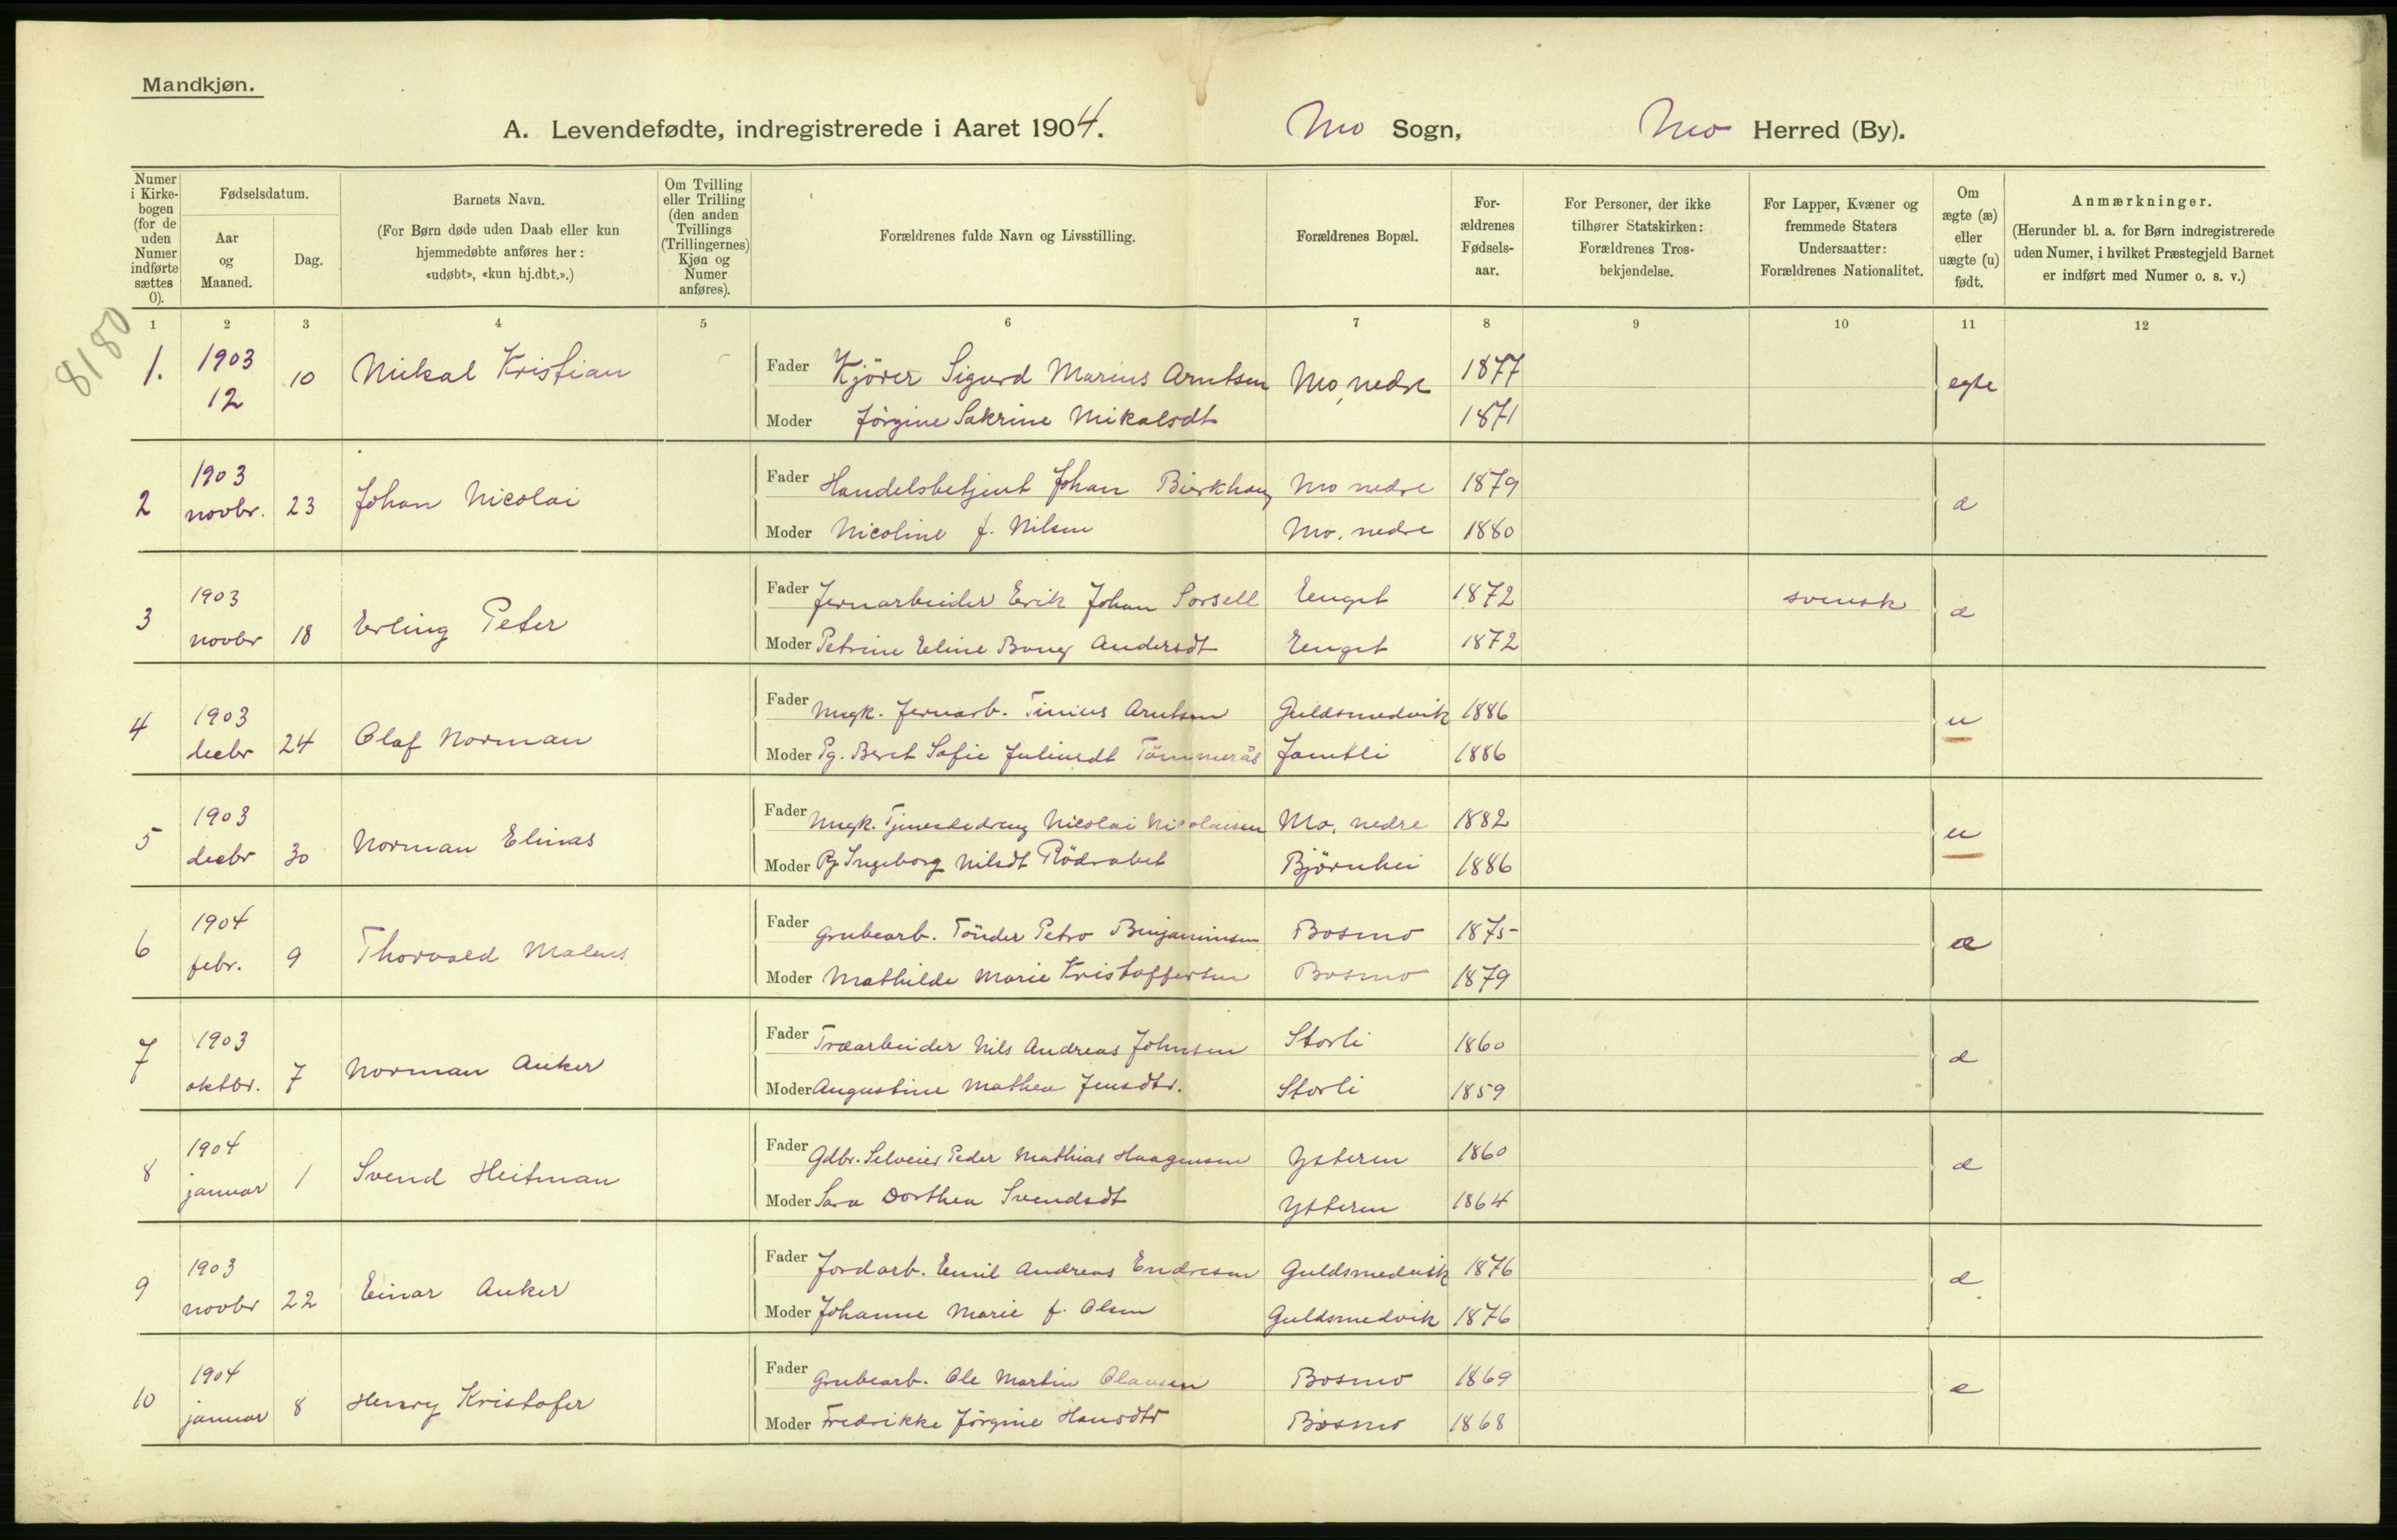 Mandkjøn.
A. Levendefødte, indregistrerede i Aaret 1904.
Mo Sogn,
Mo Herred (By).
Numer i Kirkebogen (for de uden Numer indførte sættes 0).
Fødselsdatum.
Aar og Maaned.
Dag.
Barnets Navn.
(For Børn døde uden Daab eller kun hjemmedøbte anføres her: «udøbt», «kun hj.dbt.».)
Om Tvilling eller Trilling (den anden Tvillings (Trillingernes) Kjøn og Numer anføres).
Forældrenes fulde Navn og Livsstilling.
Forældrenes Bopæl.
Forældrenes Fødselsaar.
For Personer, der ikke tilhører Statskirken: Forældrenes Trosbekjendelse.
For Lapper, Kvæner og fremmede Staters Undersaatter: Forældrenes Nationalitet.
Om ægte (æ) eller uægte (u) født.
Anmærkninger.
(Herunder bl. a. for Børn indregistrerede uden Numer, i hvilket Præstegjeld Barnet er indført med Numer o. s. v.)
1 2 3 4 5 6 7 8 9 10 11 12
8180
1. 1903 12 10 Mikal Kristian
Fader Kjörer Sigurd Marius Arntsen Mo, nedre 1877 egte
Moder Jörgine Sakrine Mikalsdt 1871
2 1903 novbr. 23 Johan Nicolai
Fader Handelsbetjent Johan Mo nedre 1879 æ
Moder Nicoline f. Nilsen Mo. nedre 1880
3 1903 novbr 18 Erling Peter
Fader Jernarbeider Erik Johan Sorsell Enget 1872 svensk æ
Moder Petrine Eline Andersdt Enget 1872
4 1903 decbr 24 Olaf Norman
Fader Ungk. Jernarb. Tinius Arntsen Guldsmedvik 1886 u
Moder Pg. Beret Sofie Juliusdt Tömmerås Jamtli 1886
5 1903 decbr 30 Norman Elinas
Fader Ungk. Tjenestedreng Nicolai Nicolaisen Mo, nedre 1882 u
Moder Pg. Ingeborg Nilsdt Rödvabet Björnhei 1886
6 1904 febr. 9 Thorvald
Fader Grubearb. Tönder Petro Benjaminsen Bosmo 1875 æ
Moder Mathilde Marie Kristoffersen Bosmo 1879
7 1903 oktbr. 7 Norman Anker
Fader Træarbeider Nils Andreas Johnsen Storli 1860 æ
Moder Augustine Mathea Jensdtr. Storli 1859
8 1904 januar 1 Svend Heitman
Fader Gdbr. Selveier Peder Mathias Haagensen Ytteren 1860 æ
Moder Sara Dorthea Svendsdt Ytteren 1864
9 1903 novbr 22 Einar Anker
Fader Jordarb. Emil Andreas Endresen Guldsmedvik 1876 æ
Moder Johanne Marie f. Olsen Guldsmedvik 1876
10 1904 januar 8 Henry Kristofer
Fader Grubearb. Ole Martin Olausen Bosmo 1869 æ
Moder Fredrikke Jörgine Hansdtr Bosmo 1868